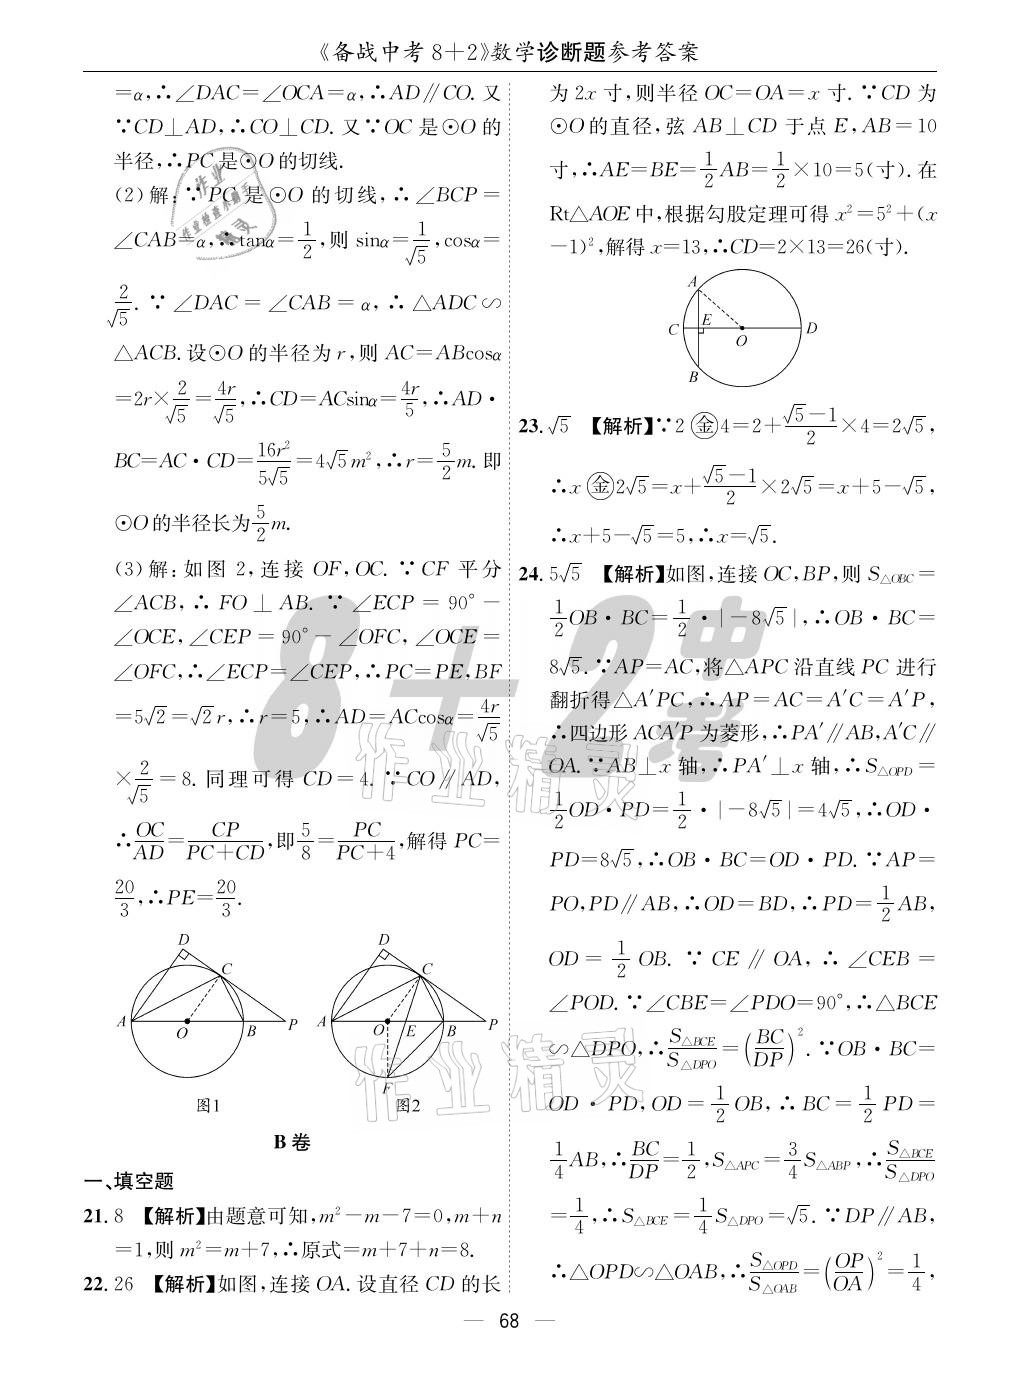 《备战中考 8+2》数学诊断题参考答案
=α,∴∠DAC=∠OCA=α,∴AD∥CO.又
∵CD⊥AD,∴CO⊥CD.又∵OC是⊙O的
半径,∴PC是⊙O的切线.
(2)解:∵PC是⊙O的切线,∴∠BCP=
∠CAB=α,∴tanα=1/2,则 sinα=1/√5,cosα=
2/√5.∵∠DAC=∠CAB=α,∴△ADC∽
△ACB.设⊙O的半径为r,则AC=ABcosα
=2r×2/√5=4r/√5,∴CD=ACsinα=4r/5,∴AD·
BC=AC·CD=16r²/5√5=4√5m²,∴r=5/2m.即
⊙O的半径长为5/2m.
(3)解:如图2,连接OF,OC.∵CF平分
∠ACB,∴FO⊥AB.∵∠ECP=90°-
∠OCE,∠CEP=90°-∠OFC,∠OCE=
∠OFC,∴∠ECP=∠CEP,∴PC=PE,BF
=5√2=√2r,∴r=5,∴AD=ACcosα=4r/√5
×2/√5=8.同理可得CD=4.∵CO∥AD,
∴OC/AD=CP/(PC+CD),即5/8=PC/(PC+4),解得PC=
20/3,∴PE=20/3.
D
C
A
O
B
P
图1
D
C
A
O
E
B
P
F
图2
B卷
一、填空题
21. 8 【解析】由题意可知,m²-m-7=0,m+n
=1,则m²=m+7,∴原式=m+7+n=8.
22. 26 【解析】如图,连接OA.设直径CD的长
为2x寸,则半径OC=OA=x寸.∵CD为
⊙O的直径,弦AB⊥CD于点E,AB=10
寸,∴AE=BE=1/2AB=1/2×10=5(寸).在
Rt△AOE中,根据勾股定理可得x²=5²+(x
-1)²,解得x=13,∴CD=2×13=26(寸).
A
C
E
O
D
B
23. √5 【解析】∵2㊎4=2+(√5-1)/2×4=2√5,
∴x㊎2√5=x+(√5-1)/2×2√5=x+5-√5,
∴x+5-√5=5,∴x=√5.
24. 5√5 【解析】如图,连接OC,BP,则S△OBC=
1/2OB·BC=1/2·|-8√5|,∴OB·BC=
8√5.∵AP=AC,将△APC沿直线PC进行
翻折得△A′PC,∴AP=AC=A′C=A′P,
∴四边形ACA′P为菱形,∴PA′∥AB,A′C∥
OA.∵AB⊥x轴,∴PA′⊥x轴,∴S△OPD=
1/2OD·PD=1/2·|-8√5|=4√5,∴OD·
PD=8√5,∴OB·BC=OD·PD.∵AP=
PO,PD∥AB,∴OD=BD,∴PD=1/2AB,
OD=1/2OB.∵CE∥OA,∴∠CEB=
∠POD.∵∠CBE=∠PDO=90°,∴△BCE
∽△DPO,∴S△BCE/S△DPO=(BC/DP)².∵OB·BC=
OD·PD,OD=1/2OB,∴BC=1/2PD=
1/4AB,∴BC/DP=1/2,S△APC=3/4S△ABP,∴S△BCE/S△DPO
=1/4,∴S△BCE=1/4S△DPO=√5.∵DP∥AB,
∴△OPD∽△OAB,∴S△OPD/S△OAB=(OP/OA)²=1/4,
— 68 —
8+2中考
作业精灵
作业精灵